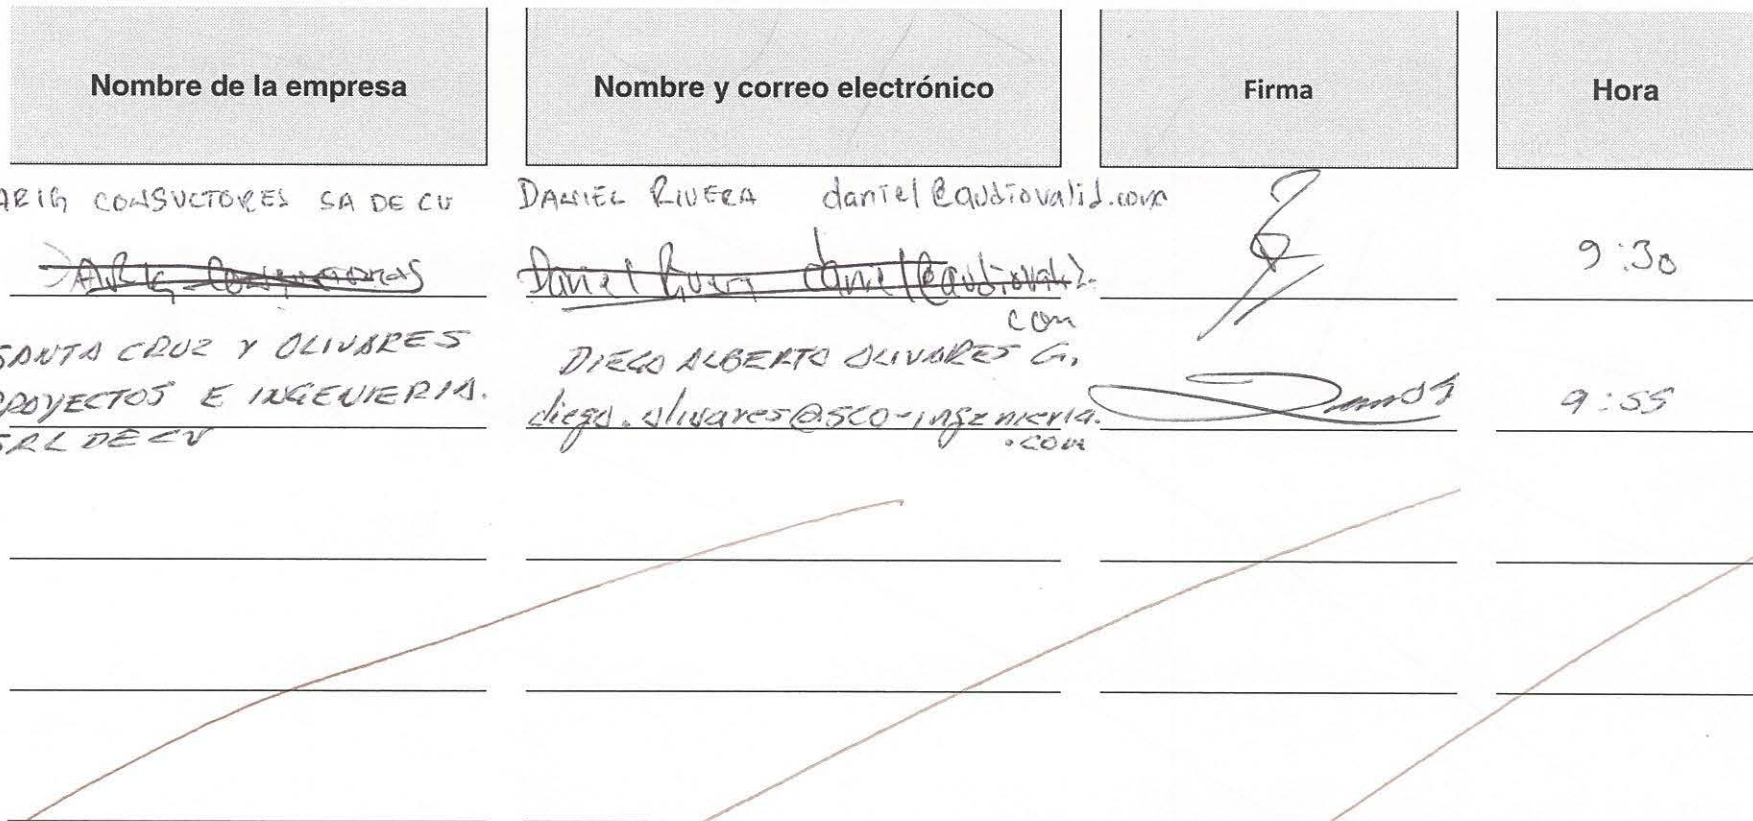 Nombre de la empresa
Nombre y correo electrónico
Firma
Hora
ARIG CONSULTORES SA DE CV
DANIEL RIVERA daniel@audiovalid.com
ARIG Consultores
Daniel Rivera daniel@audiovalid.
com
9:30
SANTA CRUZ Y OLIVARES
PROYECTOS E INGENIERIA.
SRL DE CV
DIEGO ALBERTO OLIVARES G.
diego.olivares@sco-ingenieria.
.com
9:55